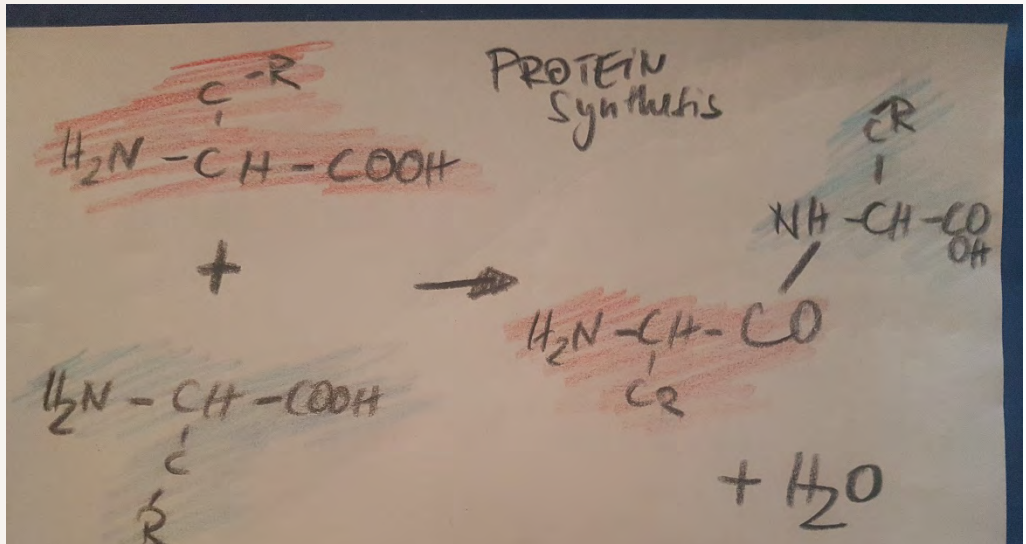 PROTEIN
Synthesis
C-R
H2N-CH-COOH
+
H2N-CH-COOH
C
R
→
CR
NH-CH-CO
OH
H2N-CH-CO
CR
+ H2O